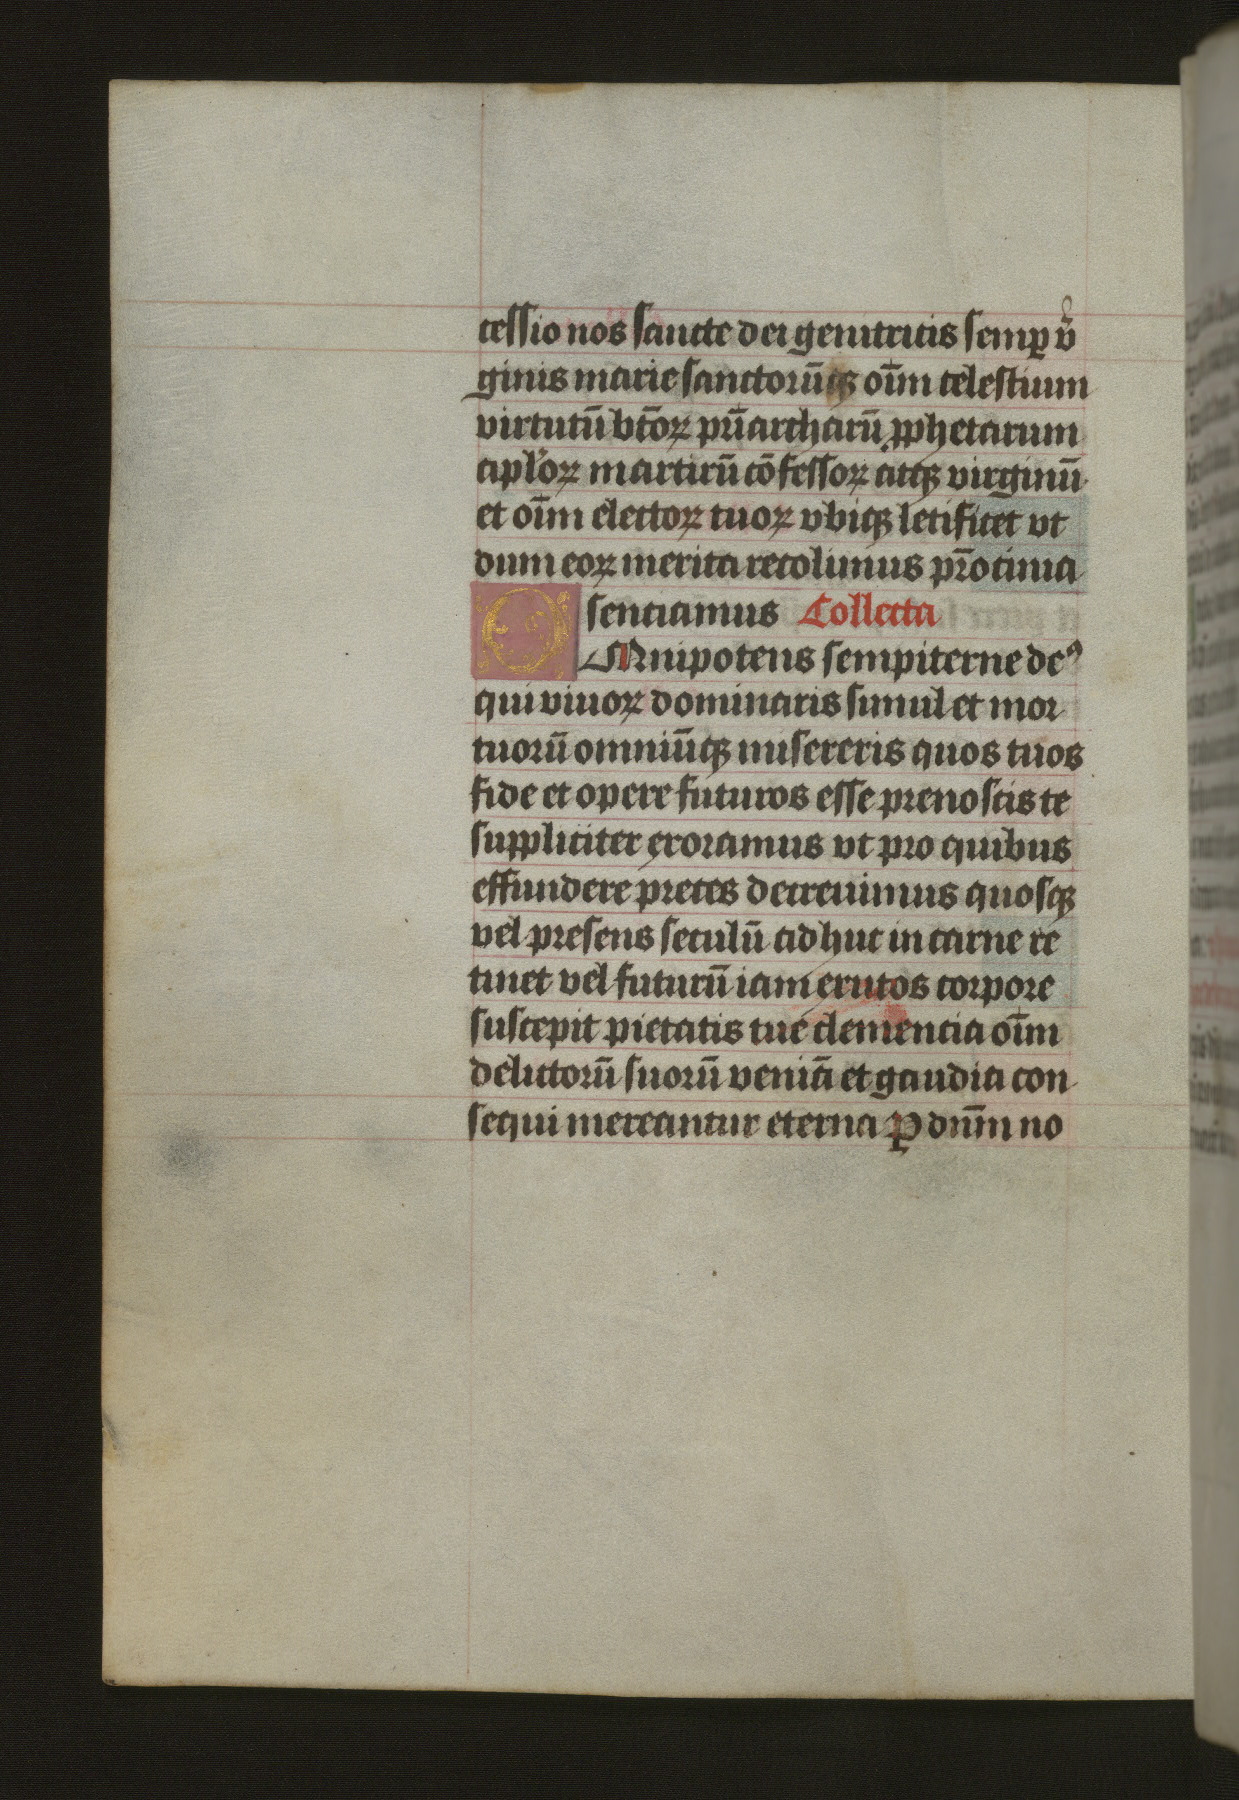 cessio nos sancte dei genitricis semꝑ v̄
ginis marie sanctorūqꝫ oīm celestium
virtutū btōꝝ pr̄iarcharū ꝓphetarum
apl'oꝝ martirū cōfessoꝝ atqꝫ virginū
et oīm electoꝝ tuoꝝ vbiqꝫ letificet vt
dum eoꝝ merita recolimus pr̄ocinia
sentiamus Collecta
OMnipotens sempiterne deꝰ
qui viuoꝝ dominaris simul et mor
tuorū omniūqꝫ misereris quos tuos
fide et opere futuros esse prenoscis te
suppliciter exoramus vt pro quibus
effundere preces decreuimus quosqꝫ
vel presens seculū adhuc in carne re
tinet vel futurū iam exutos corpore
suscepit pietatis tue clementia oīm
delictorū suorū veniā et gaudia con
sequi mereantur eterna ꝑ dnm̄ no